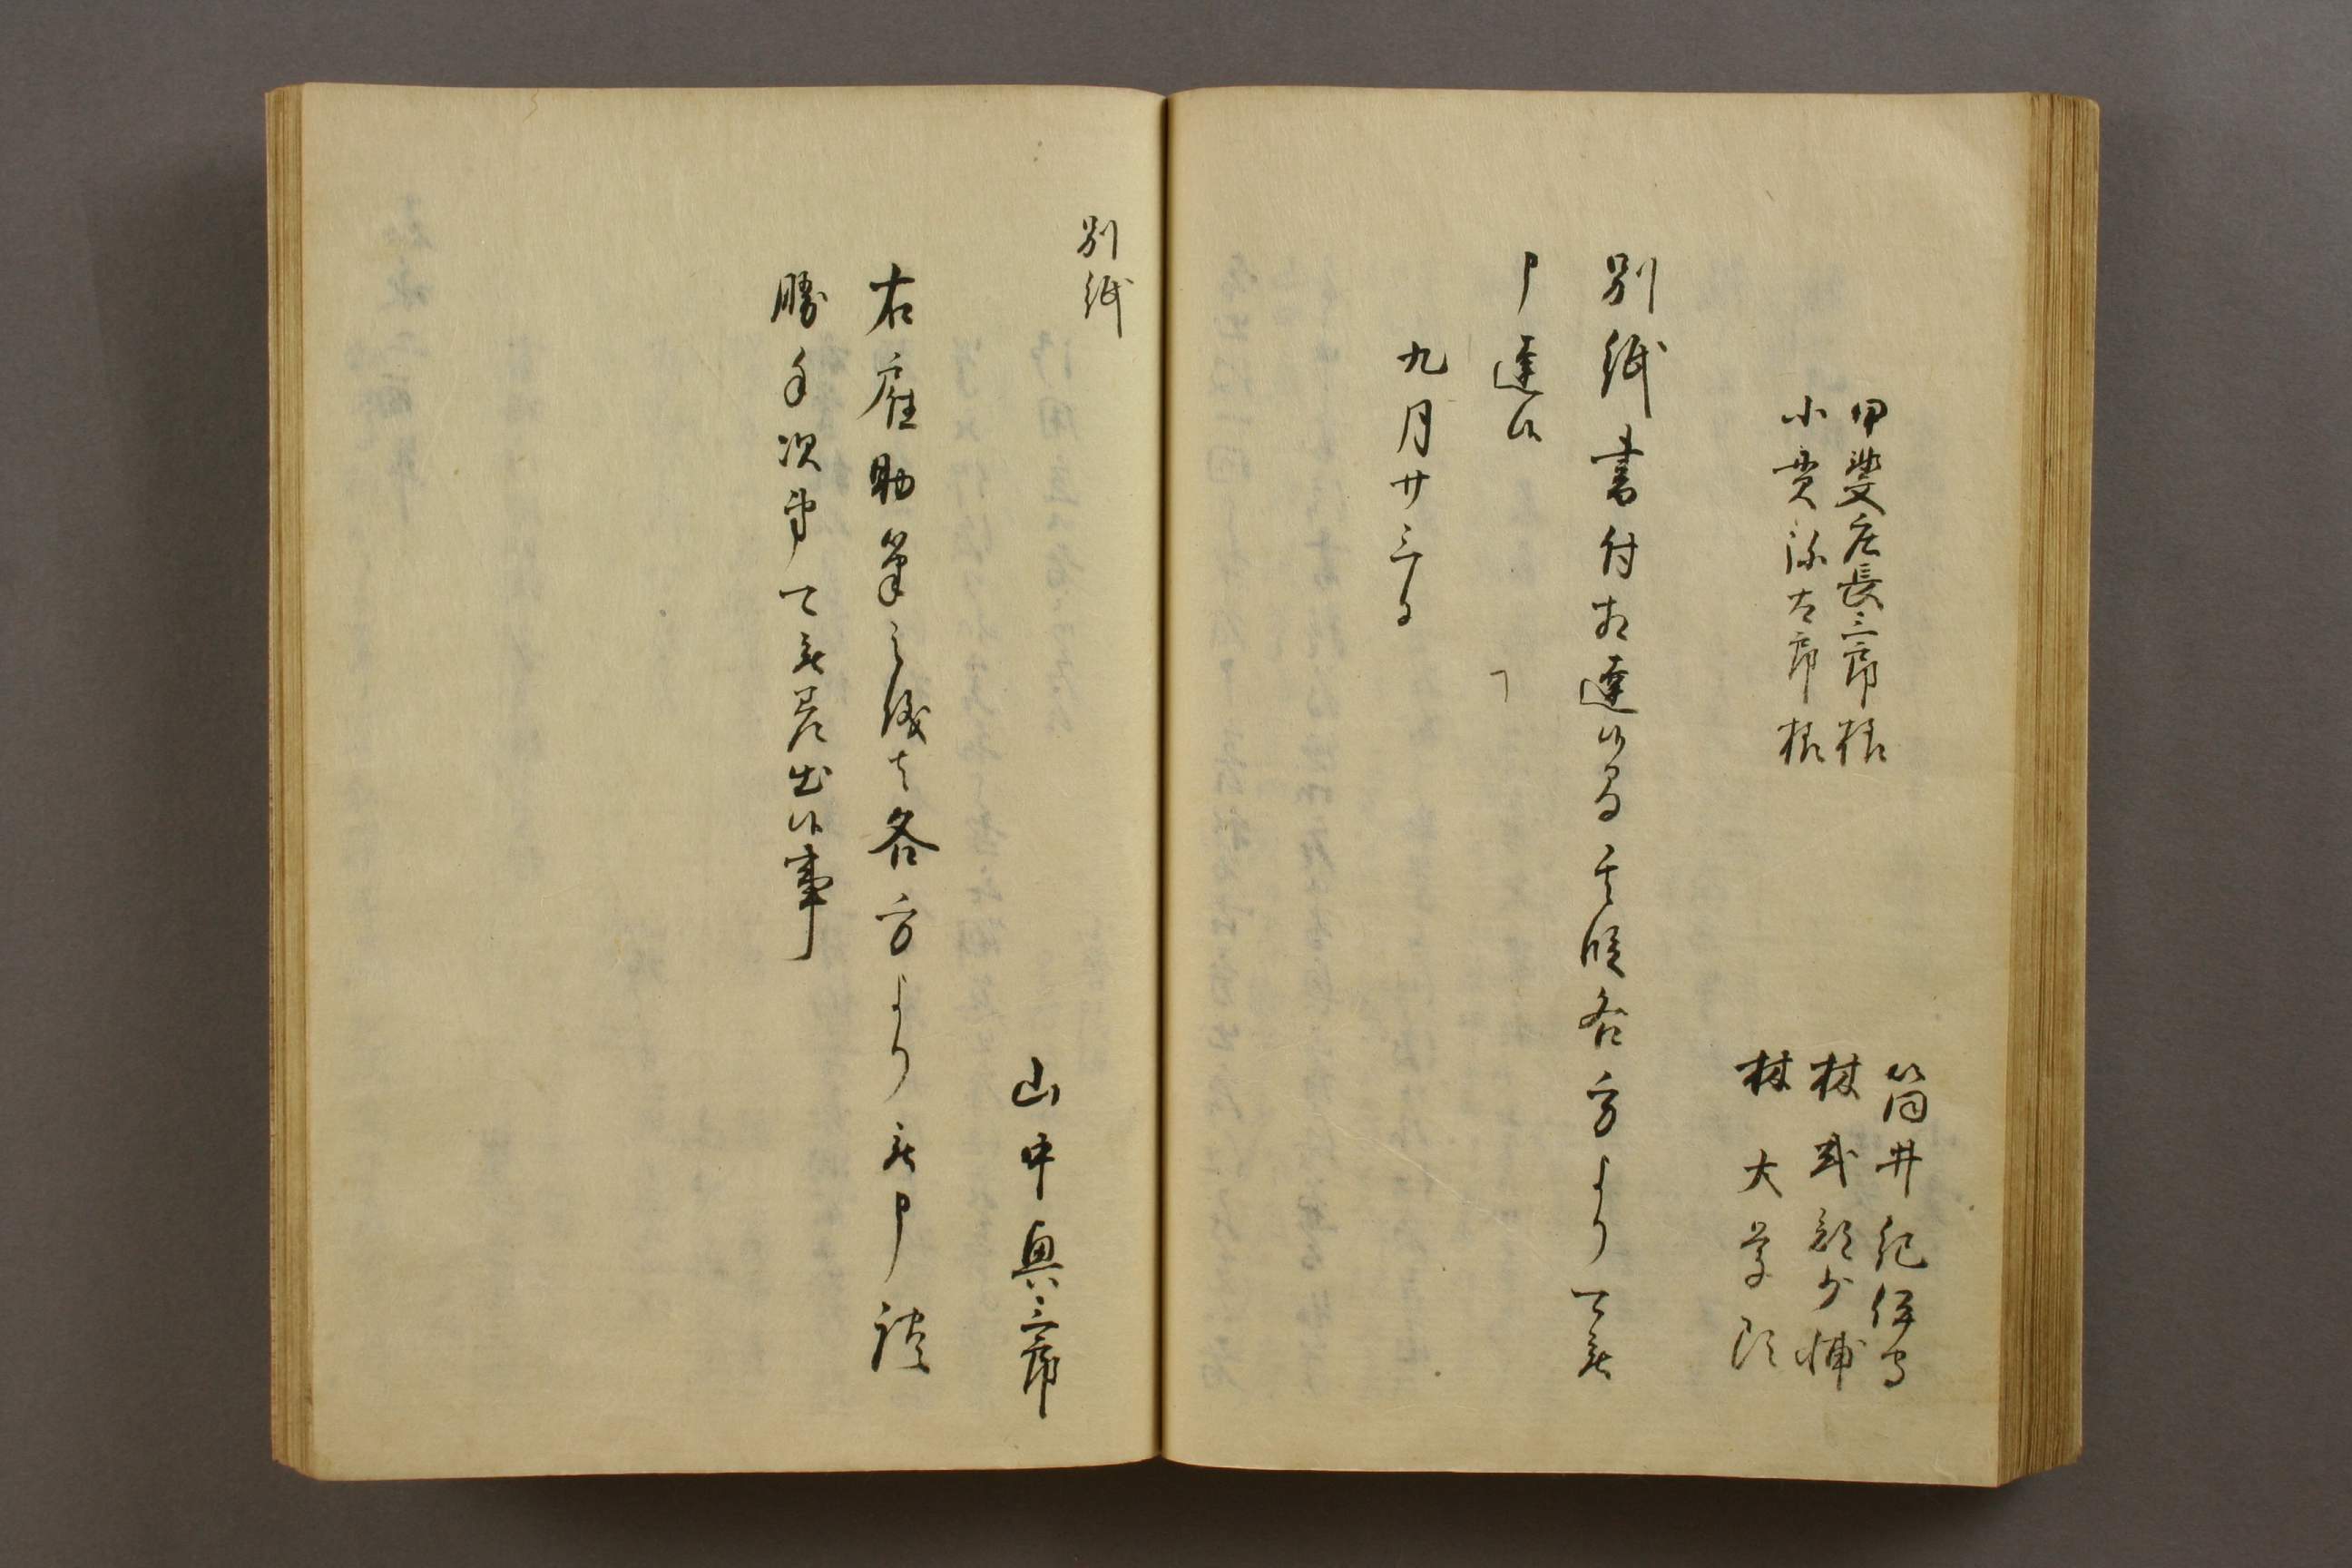 甲斐庄長三郎様
小貫弥太郎様
筒井紀伊守
林式部少輔
林大学頭
別紙書付相達候間其段各方より可被
申達候
九月廿三日
別紙
山中與三郎
右雇助筆之儀者各方より被申談
勝手次第可被差出候事